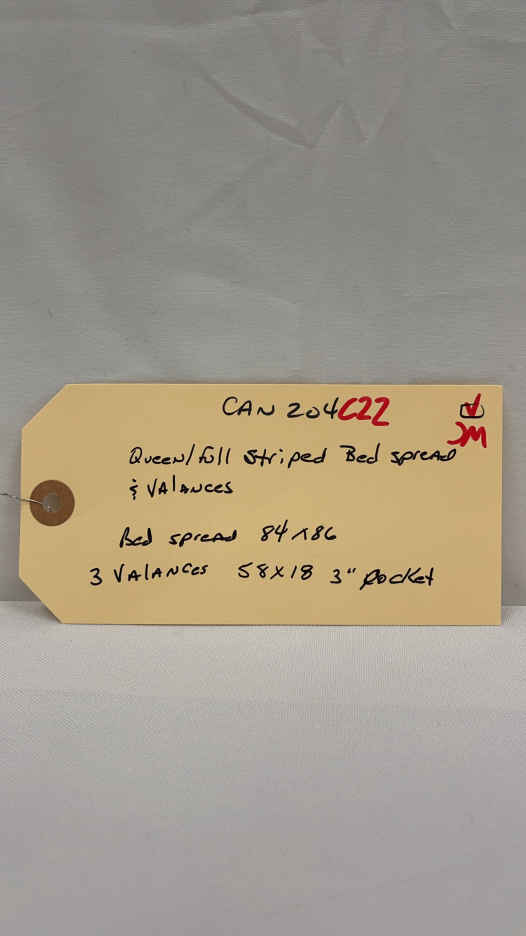 CAN 204C22
JM
Queen/full striped Bed spread
& VALANCES
Bed spread 84X86
3 VALANCES 58X18 3" pocket